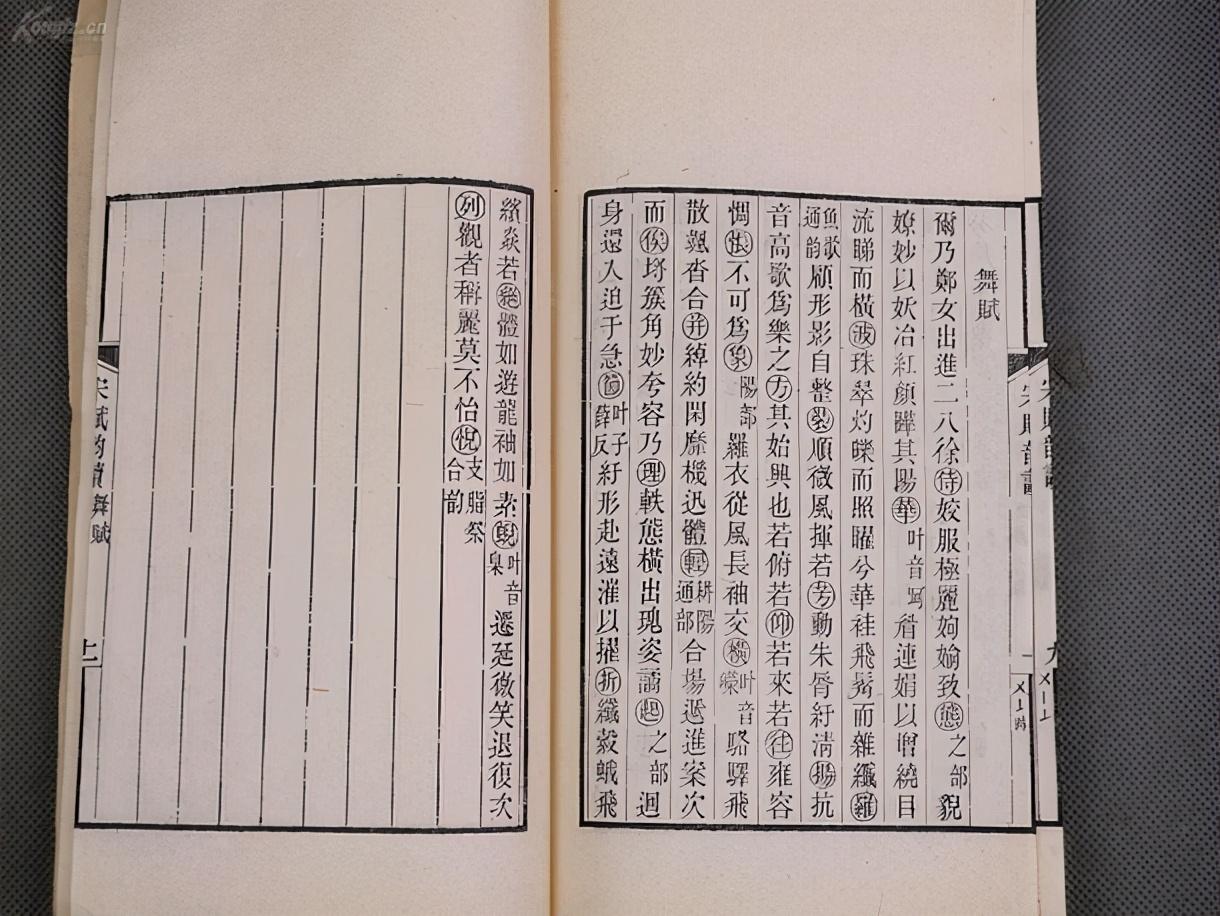 舞賦
爾乃鄭女出進二八徐侍姣服極麗姁媮致態之部貌
嫽妙以妖冶紅顏曄其陽華叶音眉連娟以增繞目
流睇而橫波珠翠灼皪而照曜兮華袿飛髾而雜纖羅
魚歌通韵顧形影自整裝順微風揮若芳動朱脣紆清揚抗
音高歌爲樂之方其始興也若俯若仰若來若往雍容
惆悵不可爲象陽部羅衣從風長袖交橫叶音駱驛飛
散颯沓合并綽約閑靡機迅體輕耕陽通部合場遞進案次
而俟埒簇角妙夸容乃理軼態橫出瑰姿譎起之部迴
身還入迫于急節叶子薛反紆形赴遠漼以摧折纖縠蛾飛
繽猋若絕體如遊龍袖如素蜺叶音臬遷延微笑退復次
列觀者稱麗莫不怡悅支脂祭合韵
宋賦韵讀舞賦
上